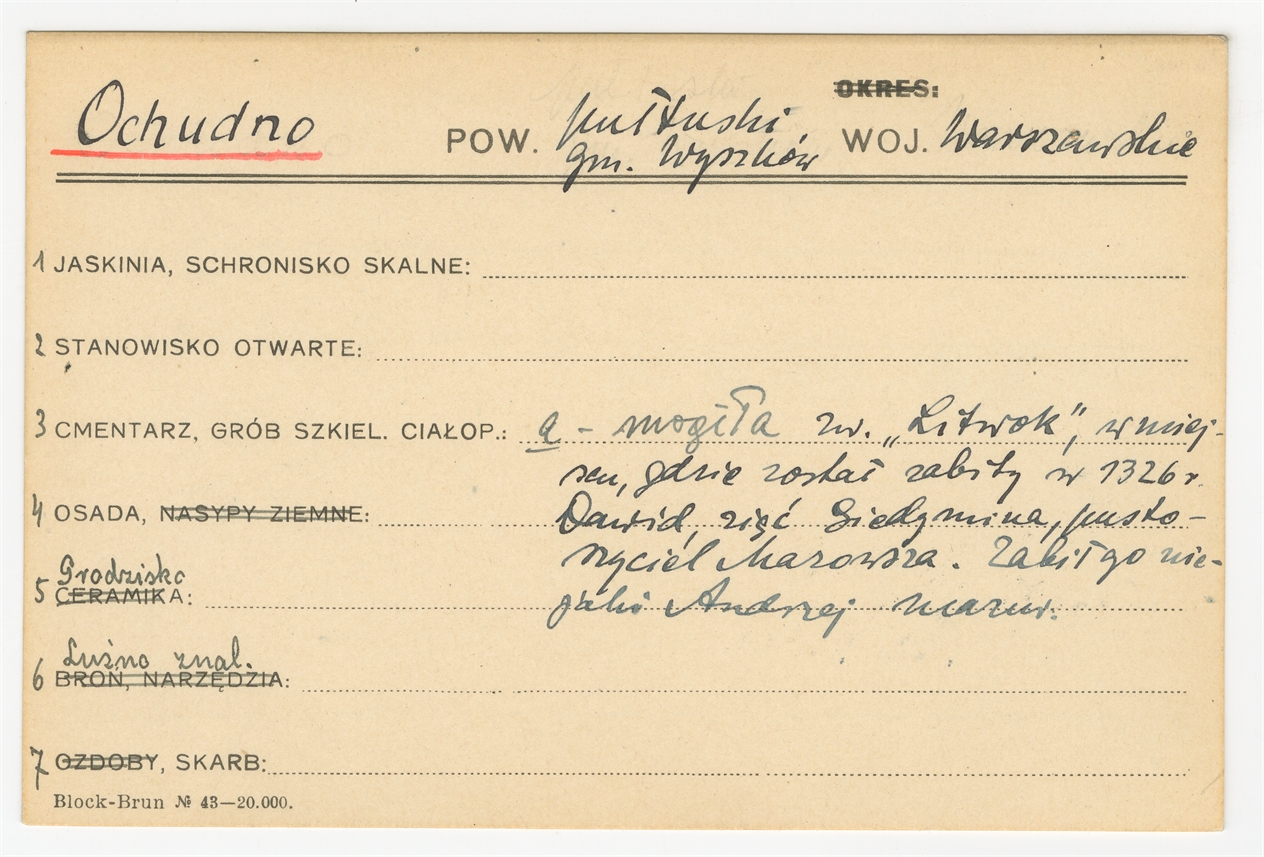 OKRES:
Ochudno POW. pułtuski WOJ. Warszawskie
gm. Wyszków
1 JASKINIA, SCHRONISKO SKALNE:
2 STANOWISKO OTWARTE:
3 CMENTARZ, GRÓB SZKIEL. CIAŁOP.: a - mogiła zw. „Litwok”, w miej-
scu, gdzie został zabity w 1326 r.
4 OSADA, NASYPY ZIEMNE: Dawid, zięć Giedymina, pusto-
szyciel Mazowsza. Zabił go nie-
Grodzisko
5 CERAMIKA: jaki Andrzej mazur.
Luźno znal.
6 BROŃ, NARZĘDZIA:
7 OZDOBY, SKARB:
Block-Brun № 43—20.000.